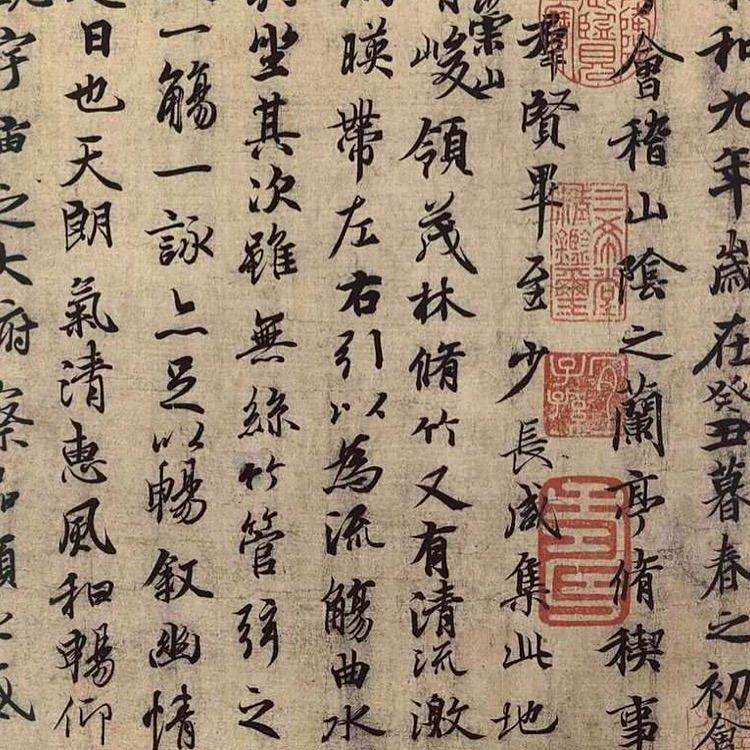 和九年歲在癸丑暮春之初會
會稽山陰之蘭亭脩稧事
羣賢畢至少長咸集此地
崇山
峻領茂林脩竹又有清流激
暎帶左右引以為流觴曲水
坐其次雖無絲竹管弦之
一觴一詠亦足以暢叙幽情
日也天朗氣清惠風和暢仰
宇宙之大俯察品類之盛
三希堂精鑑璽
宜子孫